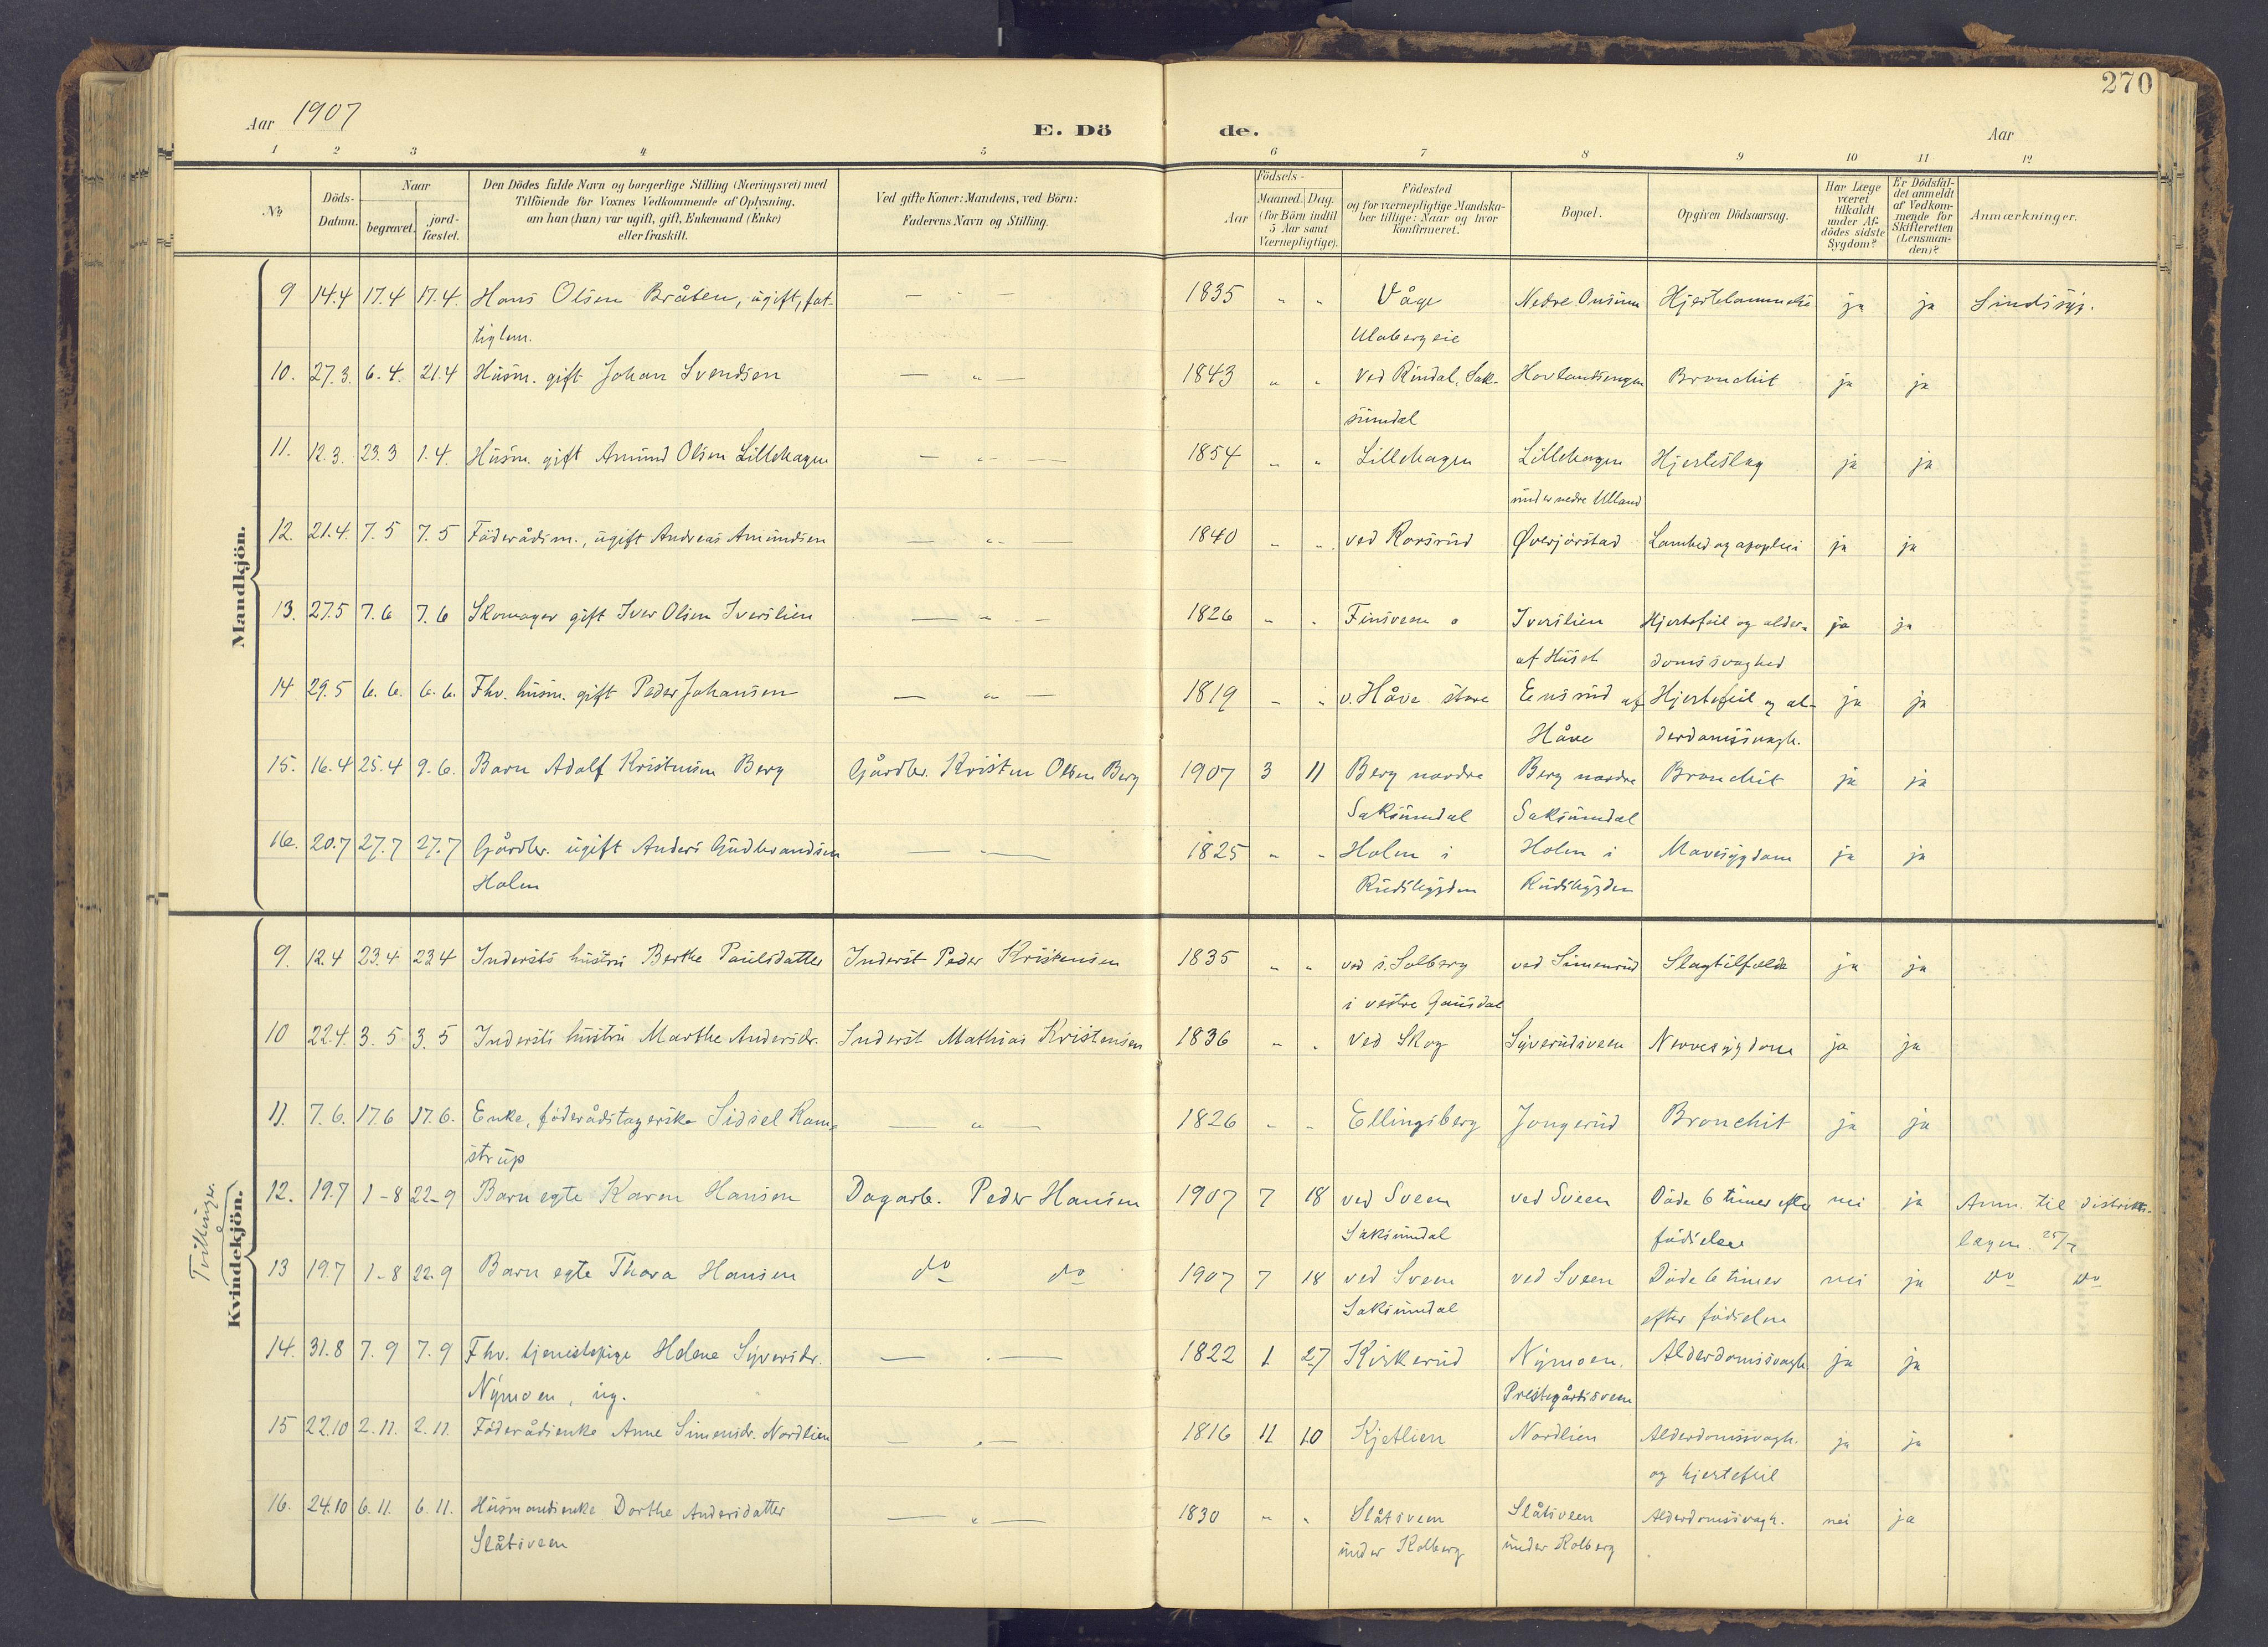 270
Aar 1907
E. Döde.
Aar
1 2 3 4 5 6 7 8 9 10 11 12
№
Döds-Datum.
Naar
begravet.
jordfæstet.
Den Dödes fulde Navn og borgerlige Stilling (Næringsvei) med
Tilföiende for Voxnes Vedkommende af Oplysning,
om han (hun) var ugift, gift, Enkemand (Enke)
eller fraskilt.
Ved gifte Koner: Mandens, ved Börn:
Faderens Navn og Stilling.
Födsels-
Aar
Maaned. Dag.
(for Börn indtil
5 Aar samt
Værnepligtige).
Födested
og for værnepligtige Mandska-
ber tillige: Naar og hvor
Konfirmeret.
Bopæl.
Opgiven Dödsaarsag.
Har Læge
været
tilkaldt
under Af-
dödes sidste
Sygdom?
Er Dödsfal-
det anmeldt
af Vedkom-
mende for
Skifteretten
(Lensman-
den)?
Anmærkninger.
Mandkjön.
9 14.4 17.4 17.4. Hans Olsen Bråten, ugift, fat- — " — 1835 " " Våge Nedre Onsum Hjertelammelse ja ja Sindssyg.
tiglem. Ulabergeie
10. 27.3. 6.4. 21.4 Husm. gift Johan Svendsen — " — 1843 " " ved Rindal, Sak- Hovlandsengen Bronchit ja ja
sumdal
11. 12.3. 23.3 1.4. Husm. gift Amund Olsen Lillehagen — " — 1854 " " Lillehagen Lillehagen Hjerteslag ja ja
under nedre Ulland
12. 21.4. 7.5 7.5 Föderådsm., ugift Andreas Amundsen — " — 1840 " " ved Korsrud Øverjörstad Lamhed og apoplexi ja ja
13. 27.5 7.6 7.6 Skomager gift Iver Olsen Iverslien — " — 1826 " " Finsveen Iverslien Hjertefeil og alder- ja ja
af domssvaghed
14 29.5 6.6. 6.6. Fhv. husm. gift Peder Johansen — " — 1819 " " v. Håve store Ensrud af Hjertefeil og al- ja ja
Håve derdomssvagh.
15. 16.4 25.4 9.6. Barn Adolf Kristensen Berg Gårdbr. Kristen Olsen Berg 1907 3 11 Berg nordre Berg nordre Bronchit ja ja
Saksumdal Saksumdal
16. 20.7 27.7 27.7 Gårdbr. ugift Anders Gudbrandsen — " — 1825 " " Holen i Holen i Mavesygdom ja ja
Holen Rudsbygden Rudsbygden
Kvindekjön.
Tvillinger.
9. 12.4 23.4 23.4 Indersts hustru Berthe Paulsdatter Inderst Peder Kristensen 1835 " " ved s. Solberg ved Simenrud Slagtilfelde ja ja
i vestre Gausdal
10 22.4. 3.5 3.5 Indersts hustru Marthe Andersdr. Inderst Mathias Kristensen 1836 " " ved Skog Syverudsveen Nervesygdom ja ja
11. 7.6. 17.6 17.6. Enke, föderådstagerske Sidsel Kam- — " — 1826 " " Ellingsberg Jongerud Bronchit ja ja
strup
12. 19.7 1-8 22-9 Barn egte Karen Hansen Dagarb. Peder Hansen 1907 7 18 ved Sveen ved Sveen Döde 6 timer efter nei ja Anm. til distrikts-
Saksumdal födselen lægen. 25/7
13 19.7 1-8 22-9 Barn egte Thora Hansen do do 1907 7 18 ved Sveen ved Sveen Döde 6 timer nei ja do do
Saksumdal efter födselen
14. 31.8 7.9 7.9 Fhv. tjenestepige Helene Syversdr. — " — 1822 1 27 Kirkerud Nymoen, Alderdomssvagh. ja ja
Nymoen, ug. Prestegårdssveen
15 22.10 2.11. 2.11. Föderådsenke Anne Simensdr. Nordlien — " — 1816 11 10 Kjetlien Nordlien Alderdomssvagh. ja ja
og hjertefeil
16. 24.10 6.11. 6.11. Husmandsenke Dorthe Andersdatter — " — 1830 " " Slåtsveen Slåtsveen Alderdomssvagh. nei ja
Slåtsveen under Kolberg under Kolberg